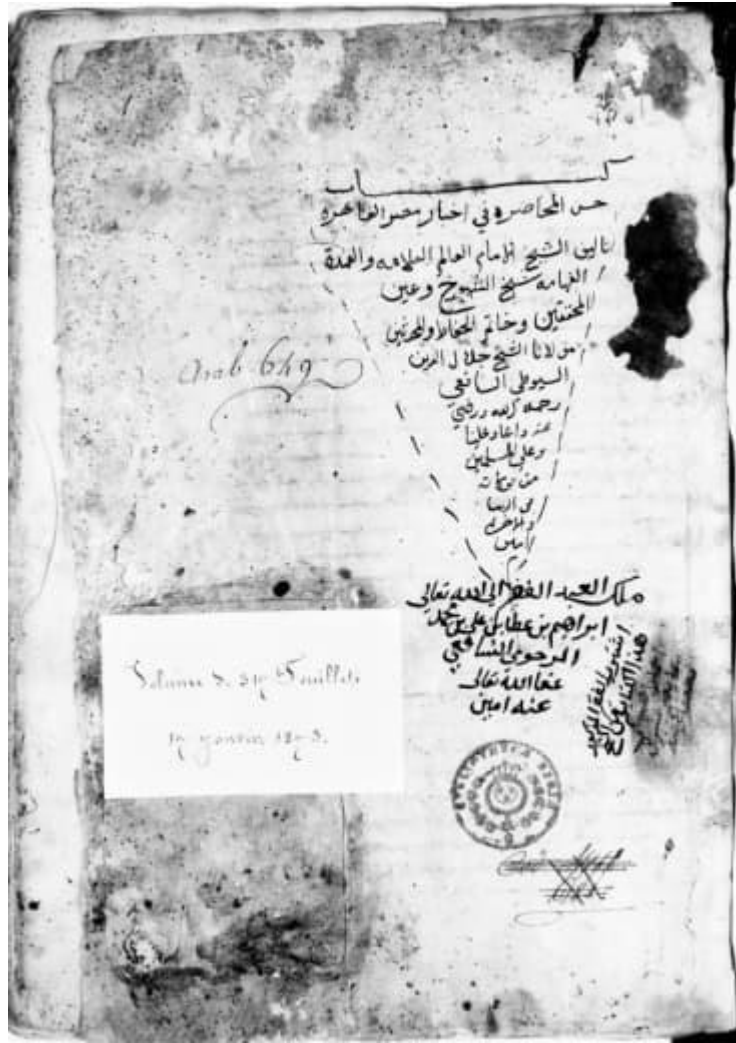 كتاب
حسن المحاضره في اخبار مصر القاهرة
تاليف الشيخ الامام العالم العلامه والعمدة
الفهامه شيخ الشيوخ وعين
المحققين وخاتم الحفاظ والمحدثين
مولانا الشيخ جلال الدين
السيوطي الشافعي
رحمه الله ورضي
عنه واعاد علينا
وعلى المسلمين
من بركاته
في الدنيا
والاخره
امين
ملك العبد الفقير الى الله تعالى
ابراهيم بن عطا بن علي بن محمد
المرحومي الشافعي
عفا الله تعالى
عنه امين
هذا الكتاب
Arab 649
Volume de Feuillets
Janvier